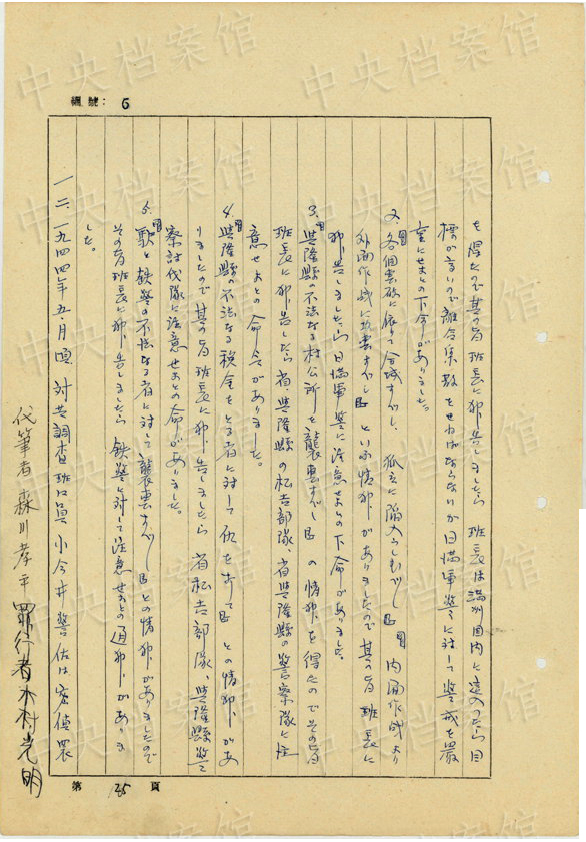 編號：6
を得たので其の旨班長に報告しましたら 班長は満州国内に這入つたら目
標が高いので離合集散をせねばならないが日満軍警に対して警戒を厳
重にせよとの下命がありました。
2.「各個撃破に依って全滅すべし、孤立に陥入らしむべし」「内面作戦より
外面作戦に攻撃すべし」といふ情報がありましたので其の旨班長に
報告しましたら日満軍警に注意せよとの下命がありました。
3.「興隆縣の不法なる村公所を襲撃すべし」の情報を得たのでその旨
班長に報告したら省、興隆縣の松吉部隊、省興隆縣の警察隊に注
意せよとの命令がありました。
4.「興隆縣の不法なる税金をとる者に対して仇を打て」との情報があ
りましたので其の旨班長に報告しましたら 省松吉部隊、興隆縣警
察討伐隊に注意せよとの命がありました。
5.「駅と鉄警の不法なる者に対して襲撃すべし」との情報がありましたので
その旨班長に報告しましたら 鉄警に対して注意せよとの通報がありま
した。
一二、一九四四年五月頃、対共調査班員小今井警佐は密偵裴
代筆者 森川孝平 罪行者木村光明
第 135 頁
中央档案馆